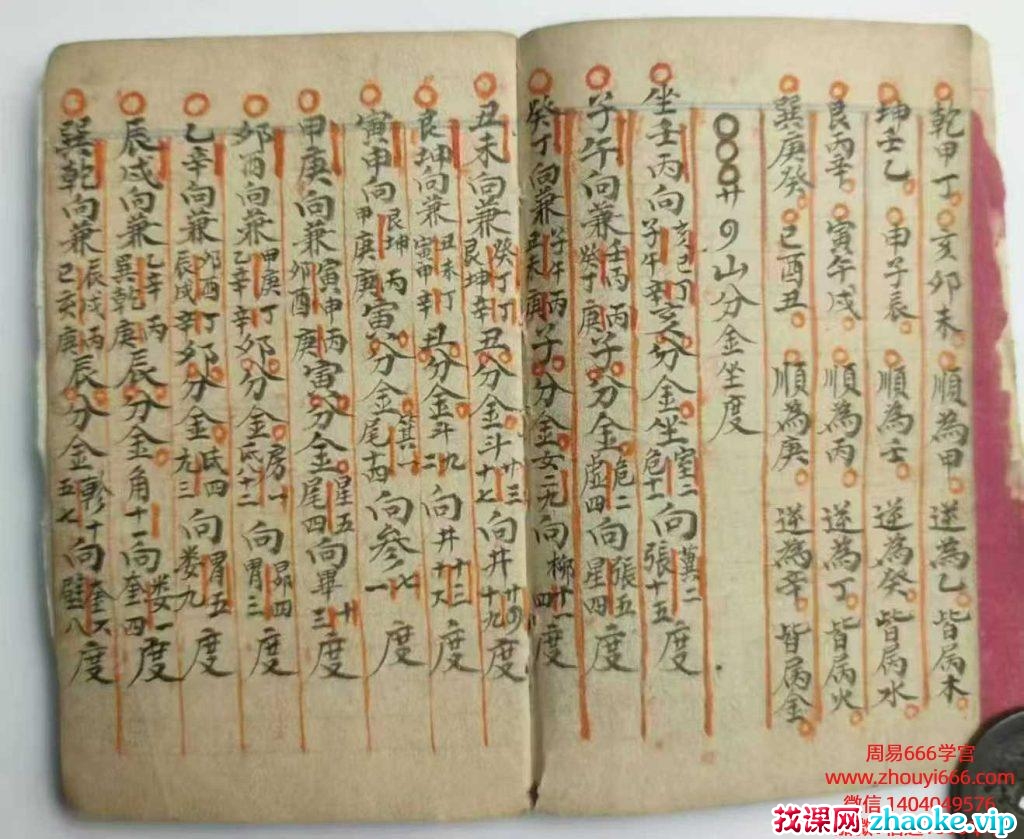 乾甲丁。亥卯未。順為甲。逆為乙。皆屬木
坤壬乙。申子辰。順為壬。逆為癸。皆屬水
艮丙辛。寅午戌。順為丙。逆為丁。皆屬火
巽庚癸。巳酉丑。順為庚。逆為辛。皆屬金
山分金坐度
坐壬丙向 亥巳丁 子午辛 亥分金坐 室二 危十一 向 翼二 張十五 度
子午向兼 壬丙丙 癸丁庚 子分金 危二 虛四 向 張五 星四 度
癸丁向兼 子午丙 丑未庚 子分金 女二九 向 柳十一 四 度
丑未向兼 癸丁丁 艮坤辛 丑分金斗 廿三 十七 向井 十九 度
艮坤向兼 丑未丁 寅申辛 丑分金 斗九 二 向井 十二 十六 度
寅申向 艮坤丙 甲庚庚 寅分金 箕一 尾十四 向參 七 一 度
甲庚向兼 寅申丙 卯酉庚 寅分金 星五 尾四 向 畢 十 三 度
卯酉向兼 甲庚丁 乙辛辛 卯分金 房一 氐十二 向 昴四 胃三 度
乙辛向兼 卯酉丁 辰戌辛 卯分金 氐四 亢三 向 胃五 婁九 度
辰戌向兼 乙辛丙 巽乾庚 辰分金角 十一 向 婁一 奎四 度
巽乾向兼 辰戌丙 巳亥庚 辰分金 軫十 五七 向 奎六 壁八 度
周易666学宫
www.zhouyi666.com
微信 1404049576
找课网zhaoke.vip